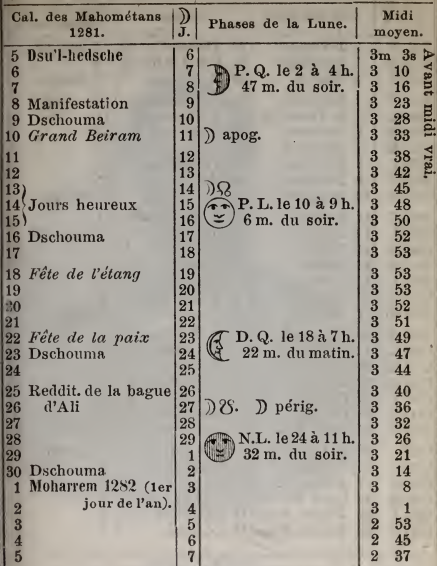 Cal. des Mahométans 1281. | ☽ J. | Phases de la Lune. | Midi moyen.
5 Dsu'l-hedsche | 6 | | 3m 3s
6 | 7 | P. Q. le 2 à 4 h. | 3 10
7 | 8 | 47 m. du soir. | 3 16
8 Manifestation | 9 | | 3 23
9 Dschouma | 10 | | 3 28
10 Grand Beiram | 11 | ☽ apog. | 3 33
11 | 12 | | 3 38
12 | 13 | | 3 42
13 | 14 | ☽☊ | 3 45
14 Jours heureux | 15 | P. L. le 10 à 9 h. | 3 48
15 | 16 | 6 m. du soir. | 3 50
16 Dschouma | 17 | | 3 52
17 | 18 | | 3 53
18 Fête de l'étang | 19 | | 3 53
19 | 20 | | 3 53
20 | 21 | | 3 52
21 | 22 | | 3 51
22 Fête de la paix | 23 | D. Q. le 18 à 7 h. | 3 49
23 Dschouma | 24 | 22 m. du matin. | 3 47
24 | 25 | | 3 44
25 Reddit. de la bague | 26 | | 3 40
26 d'Ali | 27 | ☽☋. ☽ périg. | 3 36
27 | 28 | | 3 32
28 | 29 | N.L. le 24 à 11 h. | 3 26
29 | 1 | 32 m. du soir. | 3 21
30 Dschouma | 2 | | 3 14
1 Moharrem 1282 (1er | 3 | | 3 8
2 jour de l'an). | 4 | | 3 1
3 | 5 | | 2 53
4 | 6 | | 2 45
5 | 7 | | 2 37
Avant midi vrai.